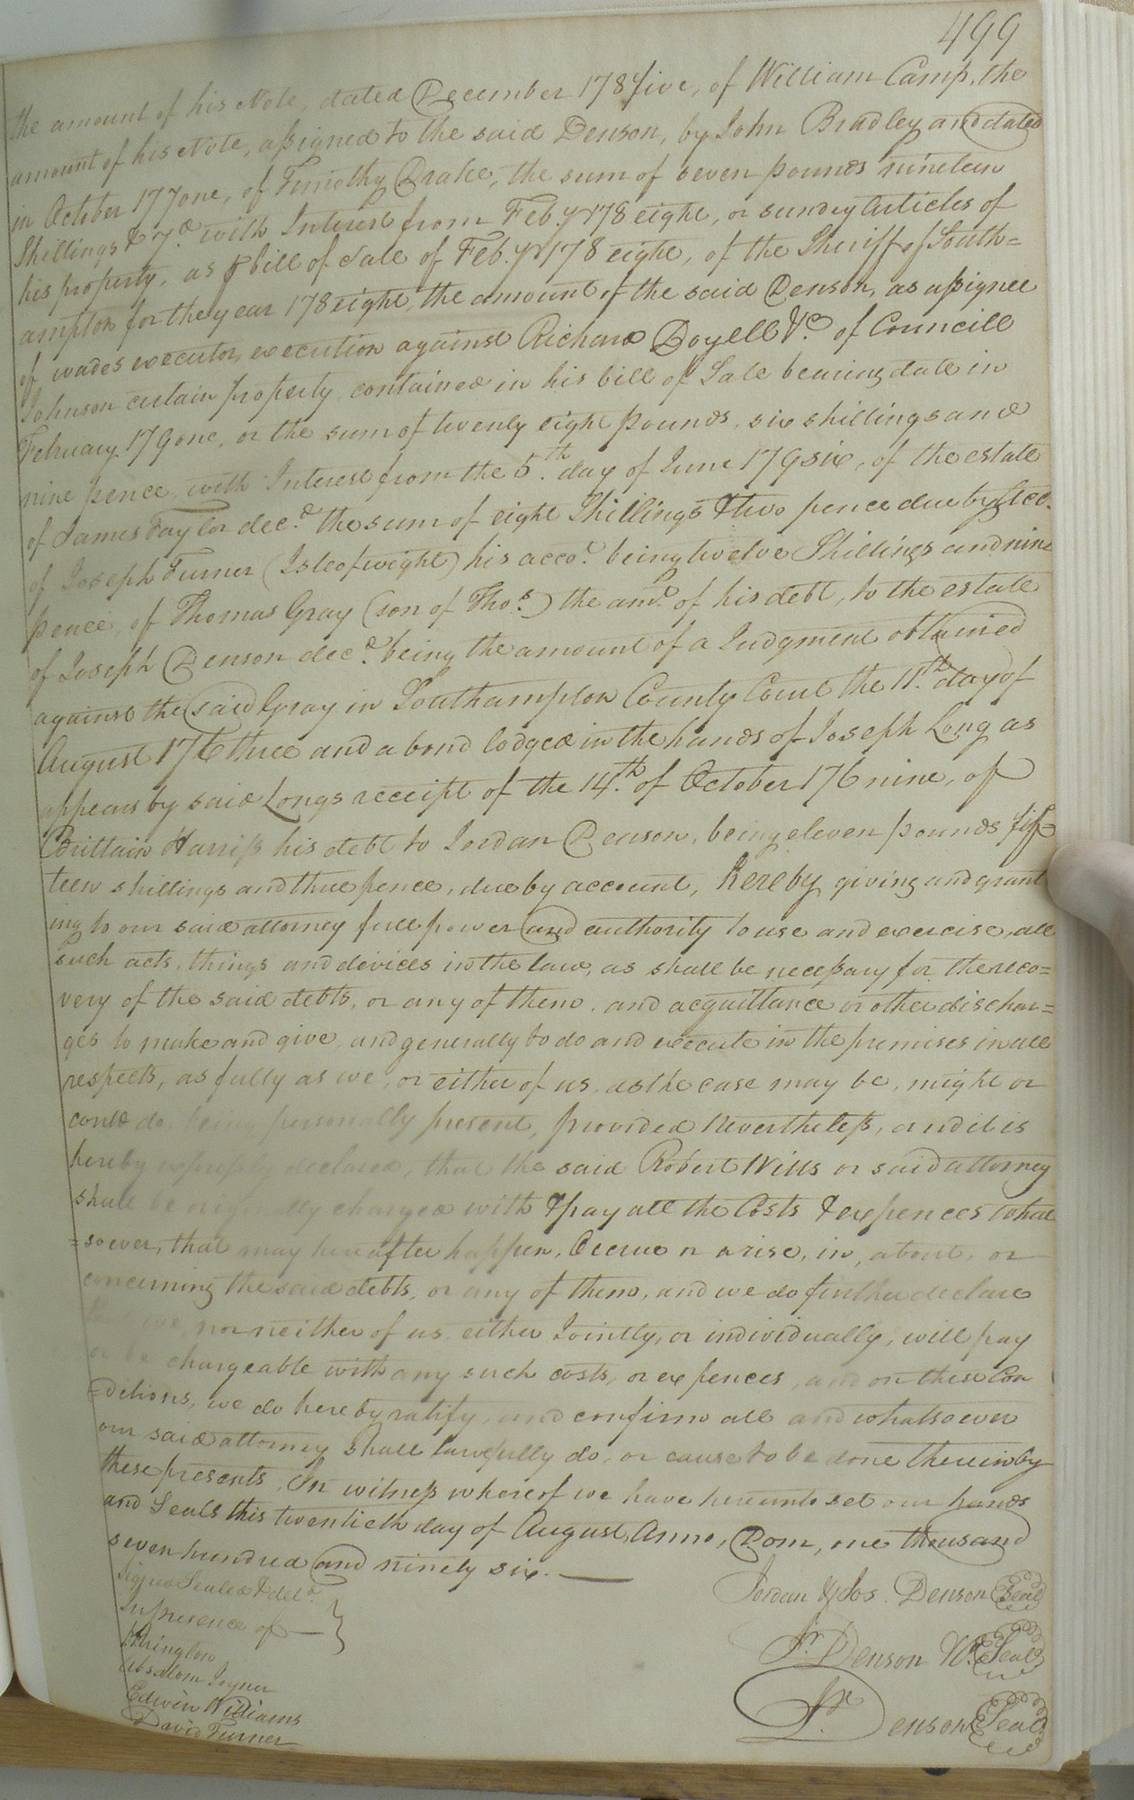 499
the amount of his Note, dated December 178five, of William Camp, the
amount of his Note, assigned to the said Denson, by John Bradley and dated
in October 177one, of Timothy Drake, the sum of seven pounds nineteen
Shillings & 7d. with Interest from Feb.y 178eight, or sundry Articles of
his property, as bill of Sale of Feb.y 178eight, of the Sheriff of South=
ampton for the year 178eight, the amount of the said Denson, as assignee
of wades executor, execution against Richard Doyell &c. of Councill
Johnson certain property contained in his bill of Sale bearing date in
February 179one, or the sum of twenly eight pounds, six shillings and
nine pence with Interest from the 5.th day of June 179six, of the estate
of James Taylor dec.d the sum of eight Shillings & two pence due by
of Joseph Turner (Isle of wight) his acco.t being twelve Shillings and nine
pence, of Thomas Gray (son of Tho.s) the am.t of his debt, to the estate
of Joseph Denson dec.d being the amount of a Judgment obtained
against the said Gray in Southampton County Court the 11.th day of
August 176three and a bond lodged in the hands of Joseph Long as
appears by said Longs receipt of the 14.th of October 176nine, of
Brittain Harriss his debt to Jordan Denson, being eleven pounds fif
teen shillings and three pence, due by account, hereby giving and grant
ing to our said attorney full power and authority to use and exercise, all
such acts, things and devices in the law, as shall be necessary for the reco=
very of the said debts, or any of them, and acquittance or other dischar=
ges to make and give, and generally to do and execute in the premises in all
respects, as fully as we, or either of us, as the case may be, might or
could do being personally present, provided Nevertheless, and it is
hereby expressly declared, that the said Robert Wills or said attorney
shall be charged with & pay all the Costs & expences what
=soever, that may hereafter happen, Accrue or arise, in, about, or
concerning the said debts, or any of them, and we do further declare
we, nor neither of us, either Jointly, or individually, will pay
or be chargeable with any such costs, or expences, and on these Con
=ditions, we do hereby ratify, and confirm all and whatsoever
our said attorney Shall lawfully do, or cause to be done therein by
these presents, In witness whereof we have hereunto set our hands
and Seals this twentieth day of August, Anno, Dom, one thousand
seven hundred and ninety six. —
Signed Sealed & del.d
In presence of —
Absalom Joyner
Edwin Williams
David Turner
Jordan & Jos. Denson Seal
Jr. Denson Seal
Jr. Denson Seal